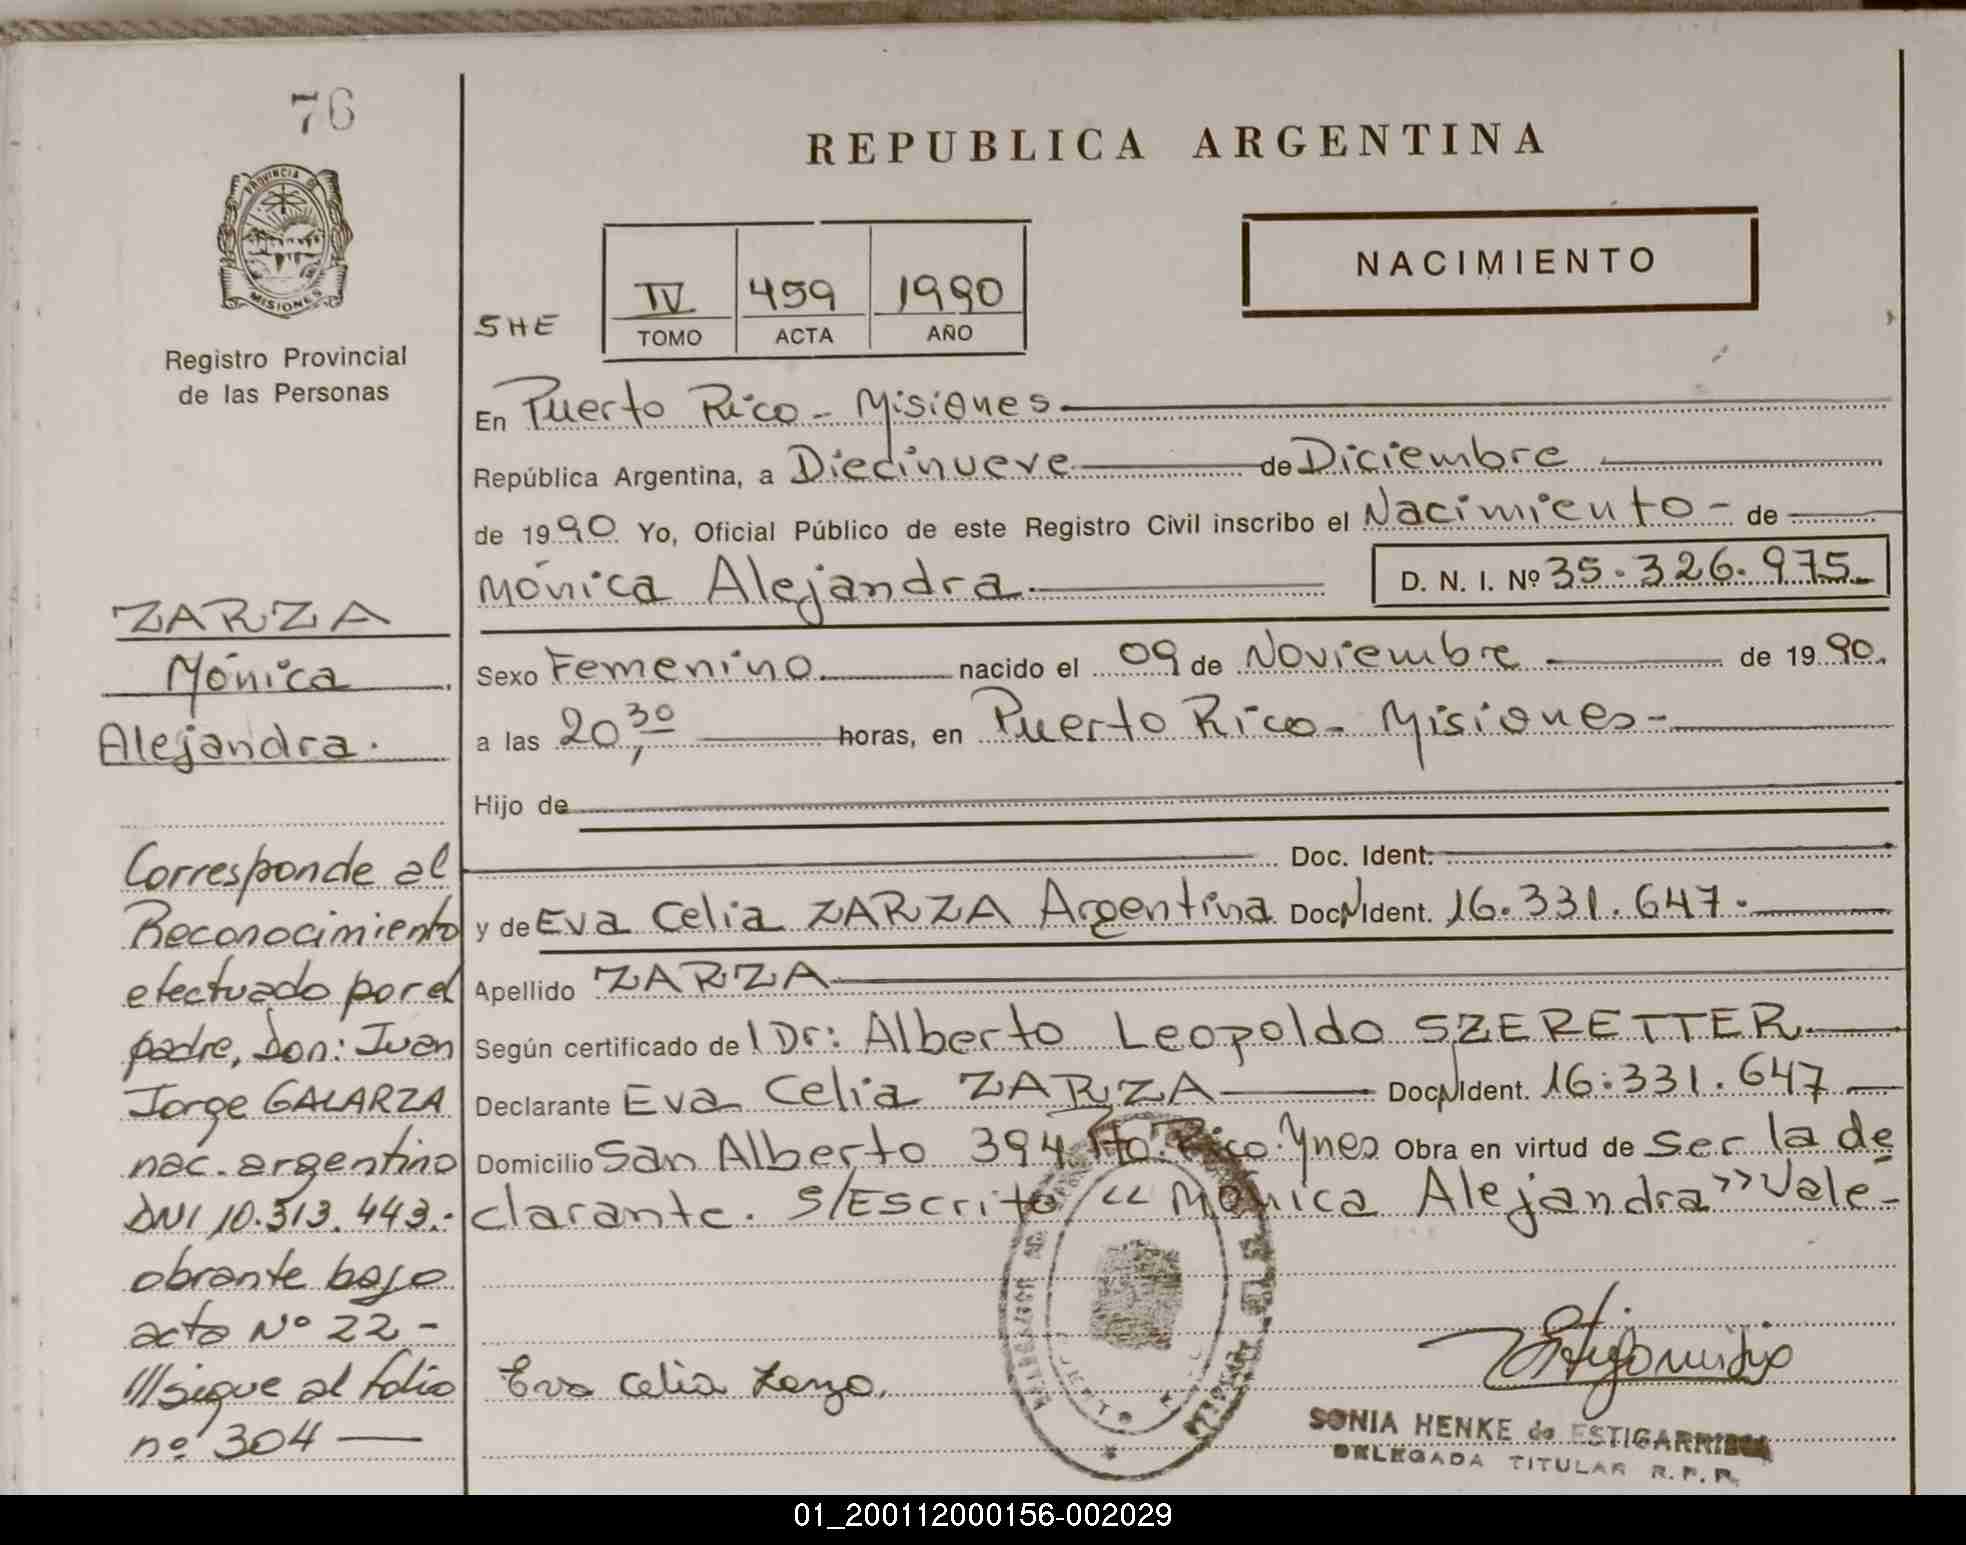 76
REPUBLICA ARGENTINA
PROVINCIA DE
MISIONES
Registro Provincial
de las Personas
NACIMIENTO
SHE
IV 459 1990
TOMO ACTA AÑO
En Puerto Rico - Misiones
República Argentina, a Diecinueve de Diciembre
de 1990 Yo, Oficial Público de este Registro Civil inscribo el Nacimiento - de
Mónica Alejandra D. N. I. Nº 35.326.975
Sexo Femenino nacido el 09 de Noviembre de 1990.
a las 20,30 horas, en Puerto Rico - Misiones -
Hijo de
Doc. Ident.
y de Eva Celia ZARZA Argentina Doc N Ident. 16.331.647.
Apellido ZARZA
Según certificado del Dr: Alberto Leopoldo SZERETTER
Declarante Eva Celia ZARZA Doc N Ident. 16.331.647
Domicilio San Alberto 394 Pto. Rico. Mnes Obra en virtud de ser la de
clarante. S/Escrito "Mónica Alejandra" Vale-
Eva Celia Zarza.
SONIA HENKE de ESTIGARRIBIA
DELEGADA TITULAR R. P. P.
ZARZA
Mónica
Alejandra.
Corresponde al
Reconocimiento
efectuado por el
padre, Don: Juan
Jorge GALARZA
nac. argentino
DNI 10.313.443.-
obrante bajo
acta Nº 22 -
///sigue al folio
nº 304
01_200112000156-002029